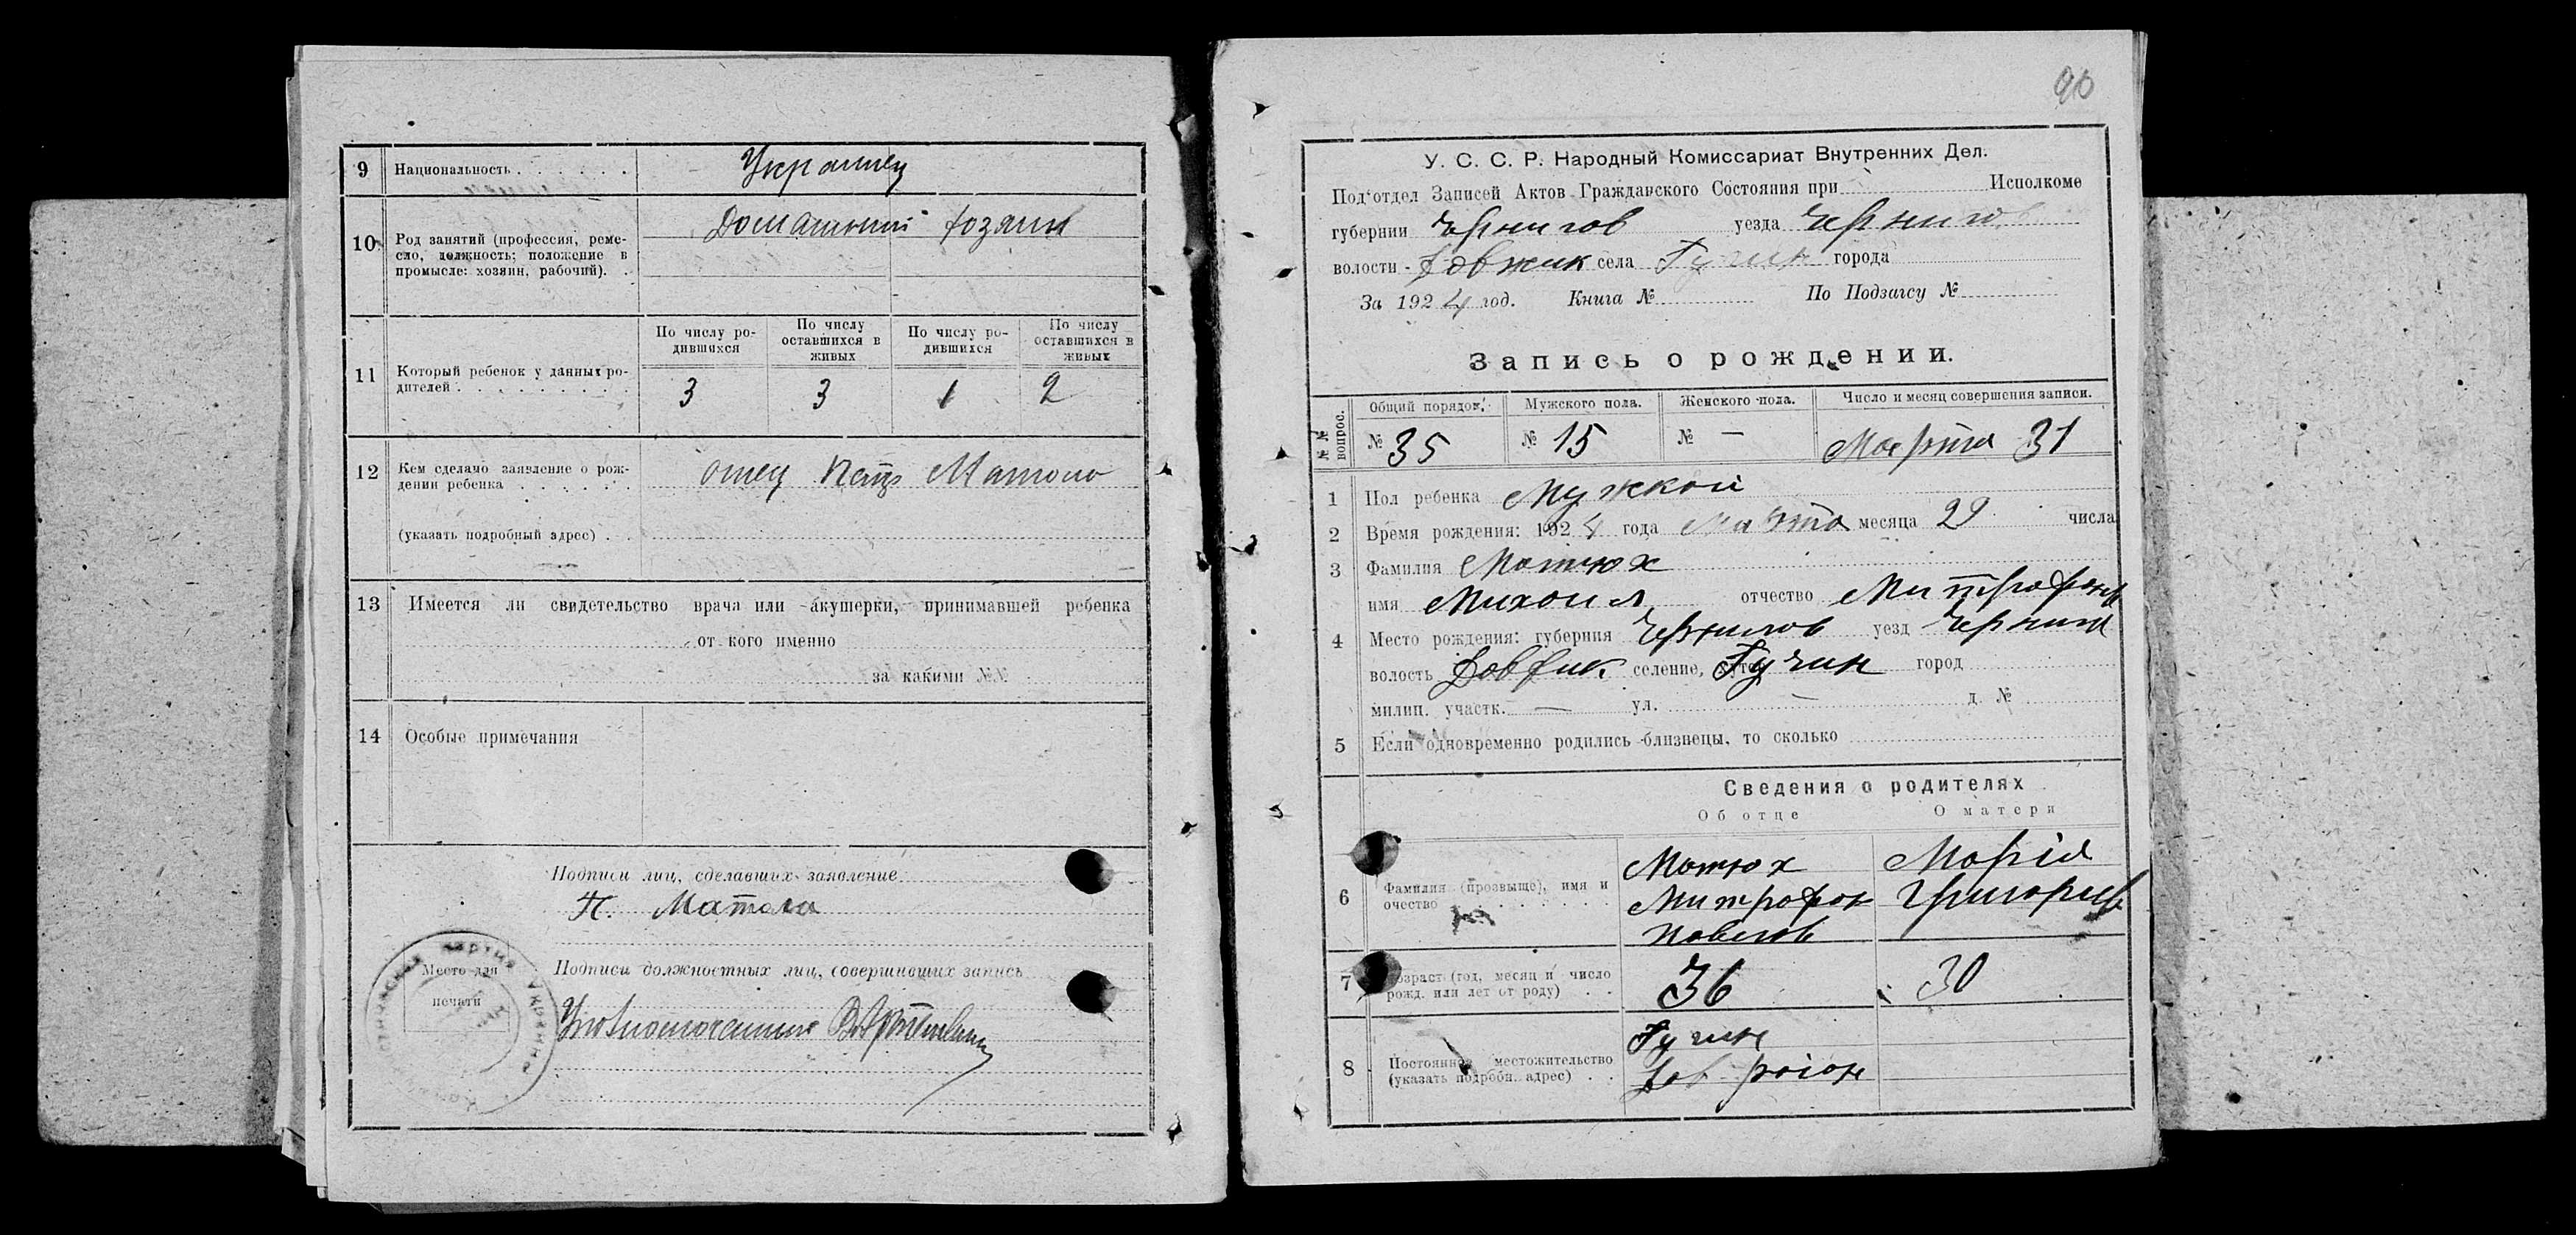 9 Национальность Украинец
10 Род занятий (профессия, реме-
сло, должность; положение в
промысле: хозяин, рабочий).
Домашний хозяин
По числу ро-
дившихся
По числу
оставшихся в
живых
По числу ро-
дившихся
По числу
оставшихся в
живых
11 Который ребенок у данных ро-
дителей
3 3 1 2
12 Кем сделано заявление о рож-
дении ребенка
отец
(указать подробный адрес)
13 Имеется ли свидетельство врача или акушерки, принимавшей ребенка
от кого именно
за какими №№
14 Особые примечания
Подписи лиц, сделавших заявление
П.
Место для
печати
Подписи должностных лиц, совершивших запись
90
У. С. С. Р. Народный Комиссариат Внутренних Дел.
Под'отдел Записей Актов Гражданского Состояния при Исполкоме
губернии Чернигов уезда Чернигов
волости села Гучин города
За 1924 год. Книга № По Подзагсу №
Запись о рождении.
№№ вопрос.
Общий порядок. Мужского пола. Женского пола. Число и месяц совершения записи.
№ 35 № 15 № — Марта 31
1 Пол ребенка Мужской
2 Время рождения: 1924 года Марта месяца 29 числа
3 Фамилия Матюх
имя Михаил отчество Митрофанов
4 Место рождения: губерния Чернигов уезд Чернигов
волость селение, хутор Гучин город
милиц. участк. — ул. — д. №
5 Если одновременно родились близнецы, то сколько
Сведения о родителях
Об отце О матери
6 Фамилия (прозвыще), имя и
очество
Матюх
Митрофан
Павлов
Марія
Григориев
7 Возраст (год, месяц и число
рожд. или лет от роду)
36 30
8 Постоянное местожительство
(указать подробн. адрес)
Гучин
район